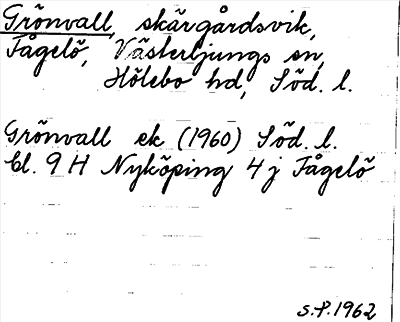 Grönvall, skärgårdsvik,
Fågelö, Västerljungs sn,
Hölebo hd, Söd. l.
Grönvall ek (1960) Söd. l.
Bl. 9 H Nyköping 4 j Fågelö
S.P. 1962